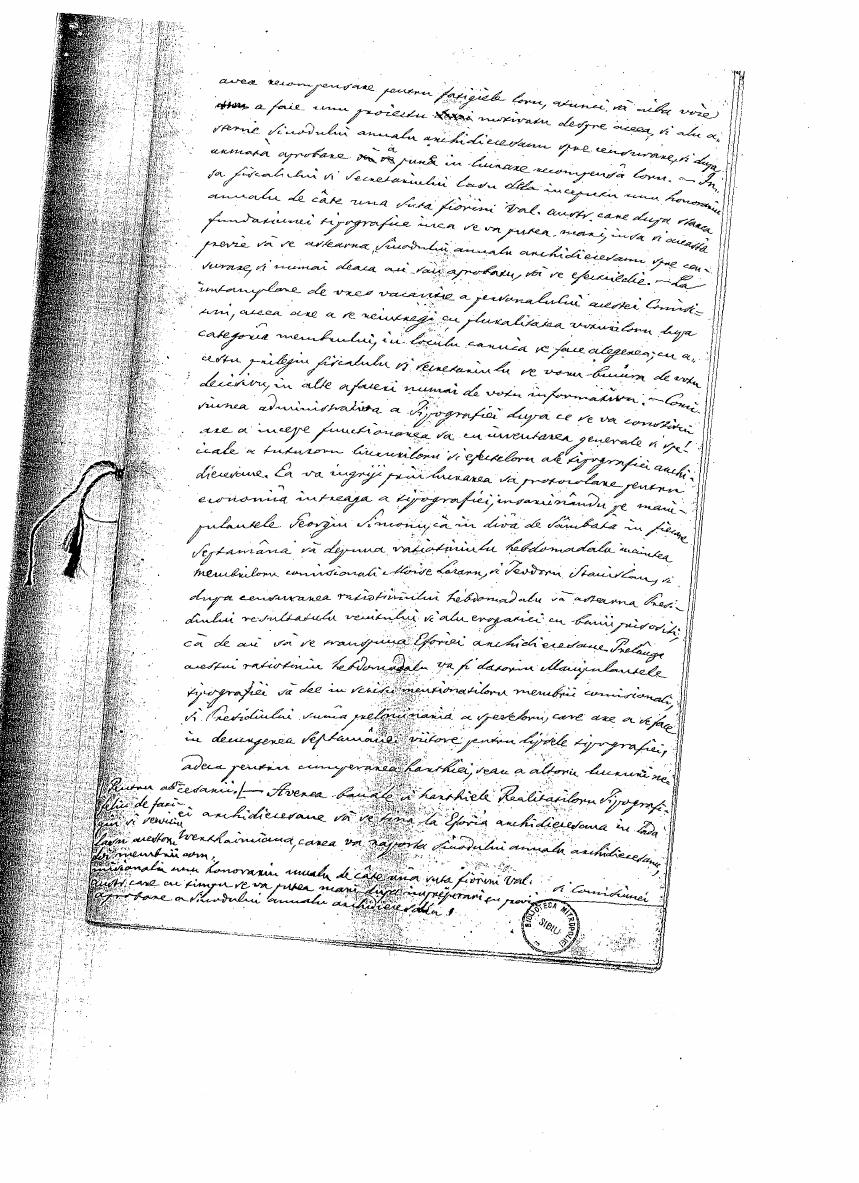 avea recompensare pentru fatigiele loru, atunci să aiba voie
a face unu proiectu motivatu despre aceea, si alu a-
sterne Sinodului anualu archidiecesanu spre censurare, si dupa
urmată aprobare a pune in lucrare recompensă loru. — In-
sa fiscalului si Secretariului lasu dela inceputu unu honorariu
anualu de câte una suta fiorini Val. austr. care dupa starea
fundatiunei tipografice inca se va putea mari, insa si aceasta
previe să se astearna Sinodului anualu archidiecesanu spre cen-
surare, si numai deaca asi sau aprobatu, să se efectuedie. — La
intamplare de vreo vacantie a personalului acestei Comisi-
uni, aceea are a se reintregi cu pluralitatea voturiloru dupa
categoria membrului, in loculu caruia se face alegerea; cu a-
cestu prilegiu fiscalulu si secretariulu se voru bucura de votu
decisivu, in alte afaceri numai de votu informativu. — Comi-
siunea administrativa a Tipografiei dupa ce se va constitui
are a incepe functionarea sa cu inventarea generale si spe-
ciale a tuturoru lucruriloru si efecteloru ale tipografiei archi-
diecesane. Ea va ingriji prin lucrarea sa protocolare pentru
economia intreaga a tipografiei, insarcinându pe mani-
pulantele Georgiu Simonu, că in diua de Sâmbata in fiecare
Septamâna să depuna ratiotiniulu hebdomadalu inaintea
membriloru comisionali Moise Lazaru, si Teodoru Stanislavu, si
dupa censurarea ratiotiniului hebdomadalu să astearna Presi-
diului resultatulu venitului si alu erogatiei cu banii prisositi,
că de aci să se transpuna Eforiei archidiecesane. Prelânga
acestui ratiotiniu hebdomadalu va fi datoriu Manipulantele
tipografiei sa dee in scrisu mentionatiloru membrii comisionali,
si Presidiului suma preliminaria a speseloru, care are a se face
in decurgerea Septamânei viitore pentru lipsele tipografiei,
adeca pentru cumperarea harthiei, seau a altoru lucruri ne-
cesarii. — Averea banale si harthiele Realitatiloru Tipografi-
ei archidiecesane să se tina la Eforia archidiecesana in Lada
Wertheimiana, carea va raporta Sinodului anualu archidiecesanu,
si Comisiunei
Pentru ast-
feliu de fati-
gii si serviciu
lasu acestoru
doi membrii com-
misionali unu honorariu anualu de câte una suta fiorini Val.
austr. care cu timpu se va putea mari, dupa imprejurari cu previa
aprobare a Sinodului anualu archidiecesanu!
BIBLIOTECA MITROPOLIEI
SIBIU